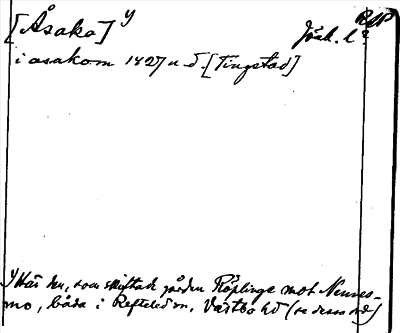 [Åsaka] y
RSP
Jösk. l?
i asakom 1427 u. d. [Tingstad]
y Här hu, som skiftade gården Röplinge mot Nennes-
mo, båda i Reftele sn, Västbo hd (se dessa ord)